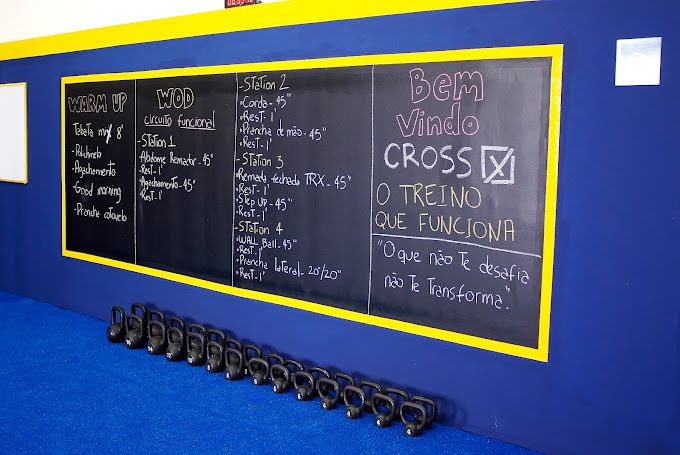 WARM UP
Tabata mix 8'
- Polichinelo
- Agachamento
- Good morning
- Prancha cotovelo
WOD
circuito funcional
- STation 1
• Abdome Remador - 45"
• Rest - 1'
• Agachamento - 45"
• Rest - 1'
- STation 2
• Corda - 45"
• Rest - 1'
• Prancha de mão - 45"
• Rest - 1'
- STation 3
• Remada fechada TRX - 45"
• Rest - 1'
• STep UP - 45"
• Rest - 1'
- STation 4
• WALL Ball - 45"
• Rest - 1'
• Prancha lateral - 20"/20"
• Rest - 1'
Bem
Vindo
CROSS X
O TREINO
QUE FUNCIONA
"O que não Te desafia
não Te Transforma."